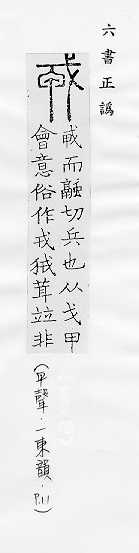 六書正譌
戎而融切兵也从戈甲
會意俗作戎狨茸竝非
(平聲·一東韻·P.11)